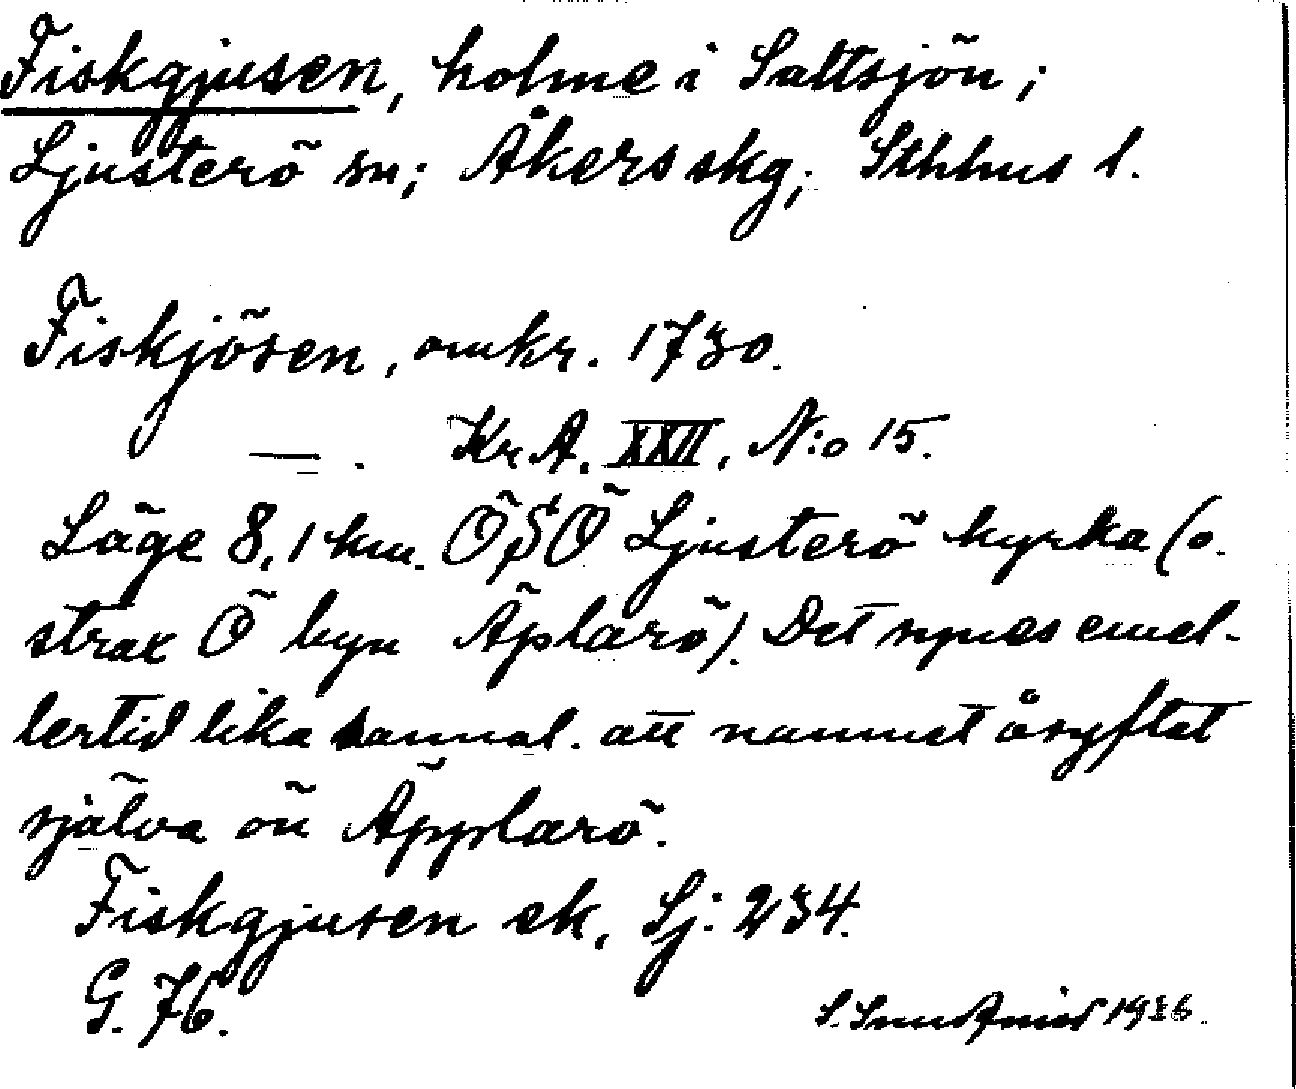 Fiskgjusen, holme i Saltsjön;
Ljusterö sn; Åkers skg; Sthlms l.
Fiskjösen, omkr. 1730.
—. Kr A. XXII, N:o 15.
Läge 8,1 km. ÖSÖ Ljusterö kyrka (o.
strax Ö byn Äplarö). Det synes emel-
lertid lika sannol. att namnet åsyftat
själva ön Äpplarö.
Fiskgjusen ek, Lj: 234.
G. 76.
1936.